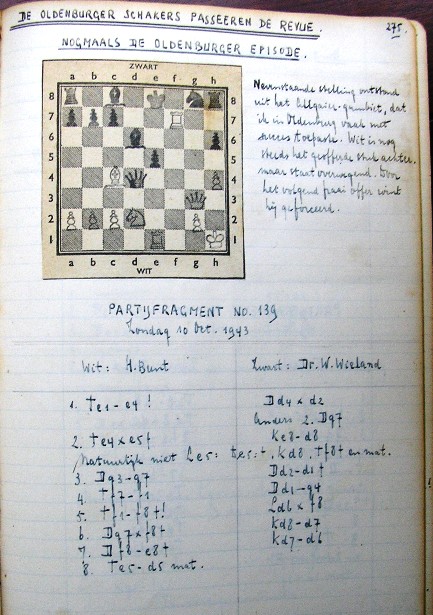 DE OLDENBURGER SCHAKERS PASSEEREN DE REVUE.
275.
NOGMAALS DE OLDENBURGER EPISODE.
ZWART
a b c d e f g h
8 8
7 7
6 6
5 5
4 4
3 3
2 2
1 1
a b c d e f g h
WIT
Nevenstaande stelling ontstond
uit het Allgaier-gambiet, dat
ik in Oldenburg vaak met
succes toepaste. Wit is nog
steeds het geofferde stuk achter,
maar staat overwegend. Door
het volgend fraai offer wint
hij geforceerd.
PARTIJFRAGMENT NO. 139
Zondag 10 Oct. 1943
Wit: H. Bunt
Zwart: Dr. W. Wieland
1. Te1-e4 !
Dd4 x d2
Anders 2. Dg7
2. Te4xe5†
Ke8-d8
Natuurlijk niet Le5: Te5:†, Kd8, Tf8† en mat.
3. Dg3-g7
Dd2-d1†
4. Tf7-f1
Dd1-g4
5. Tf1-f8†!
Ld6 x f8
6. Dg7xf8†
Kd8-d7
7. Df8-e8†
Kd7-d6
8. Te5-d5 mat.